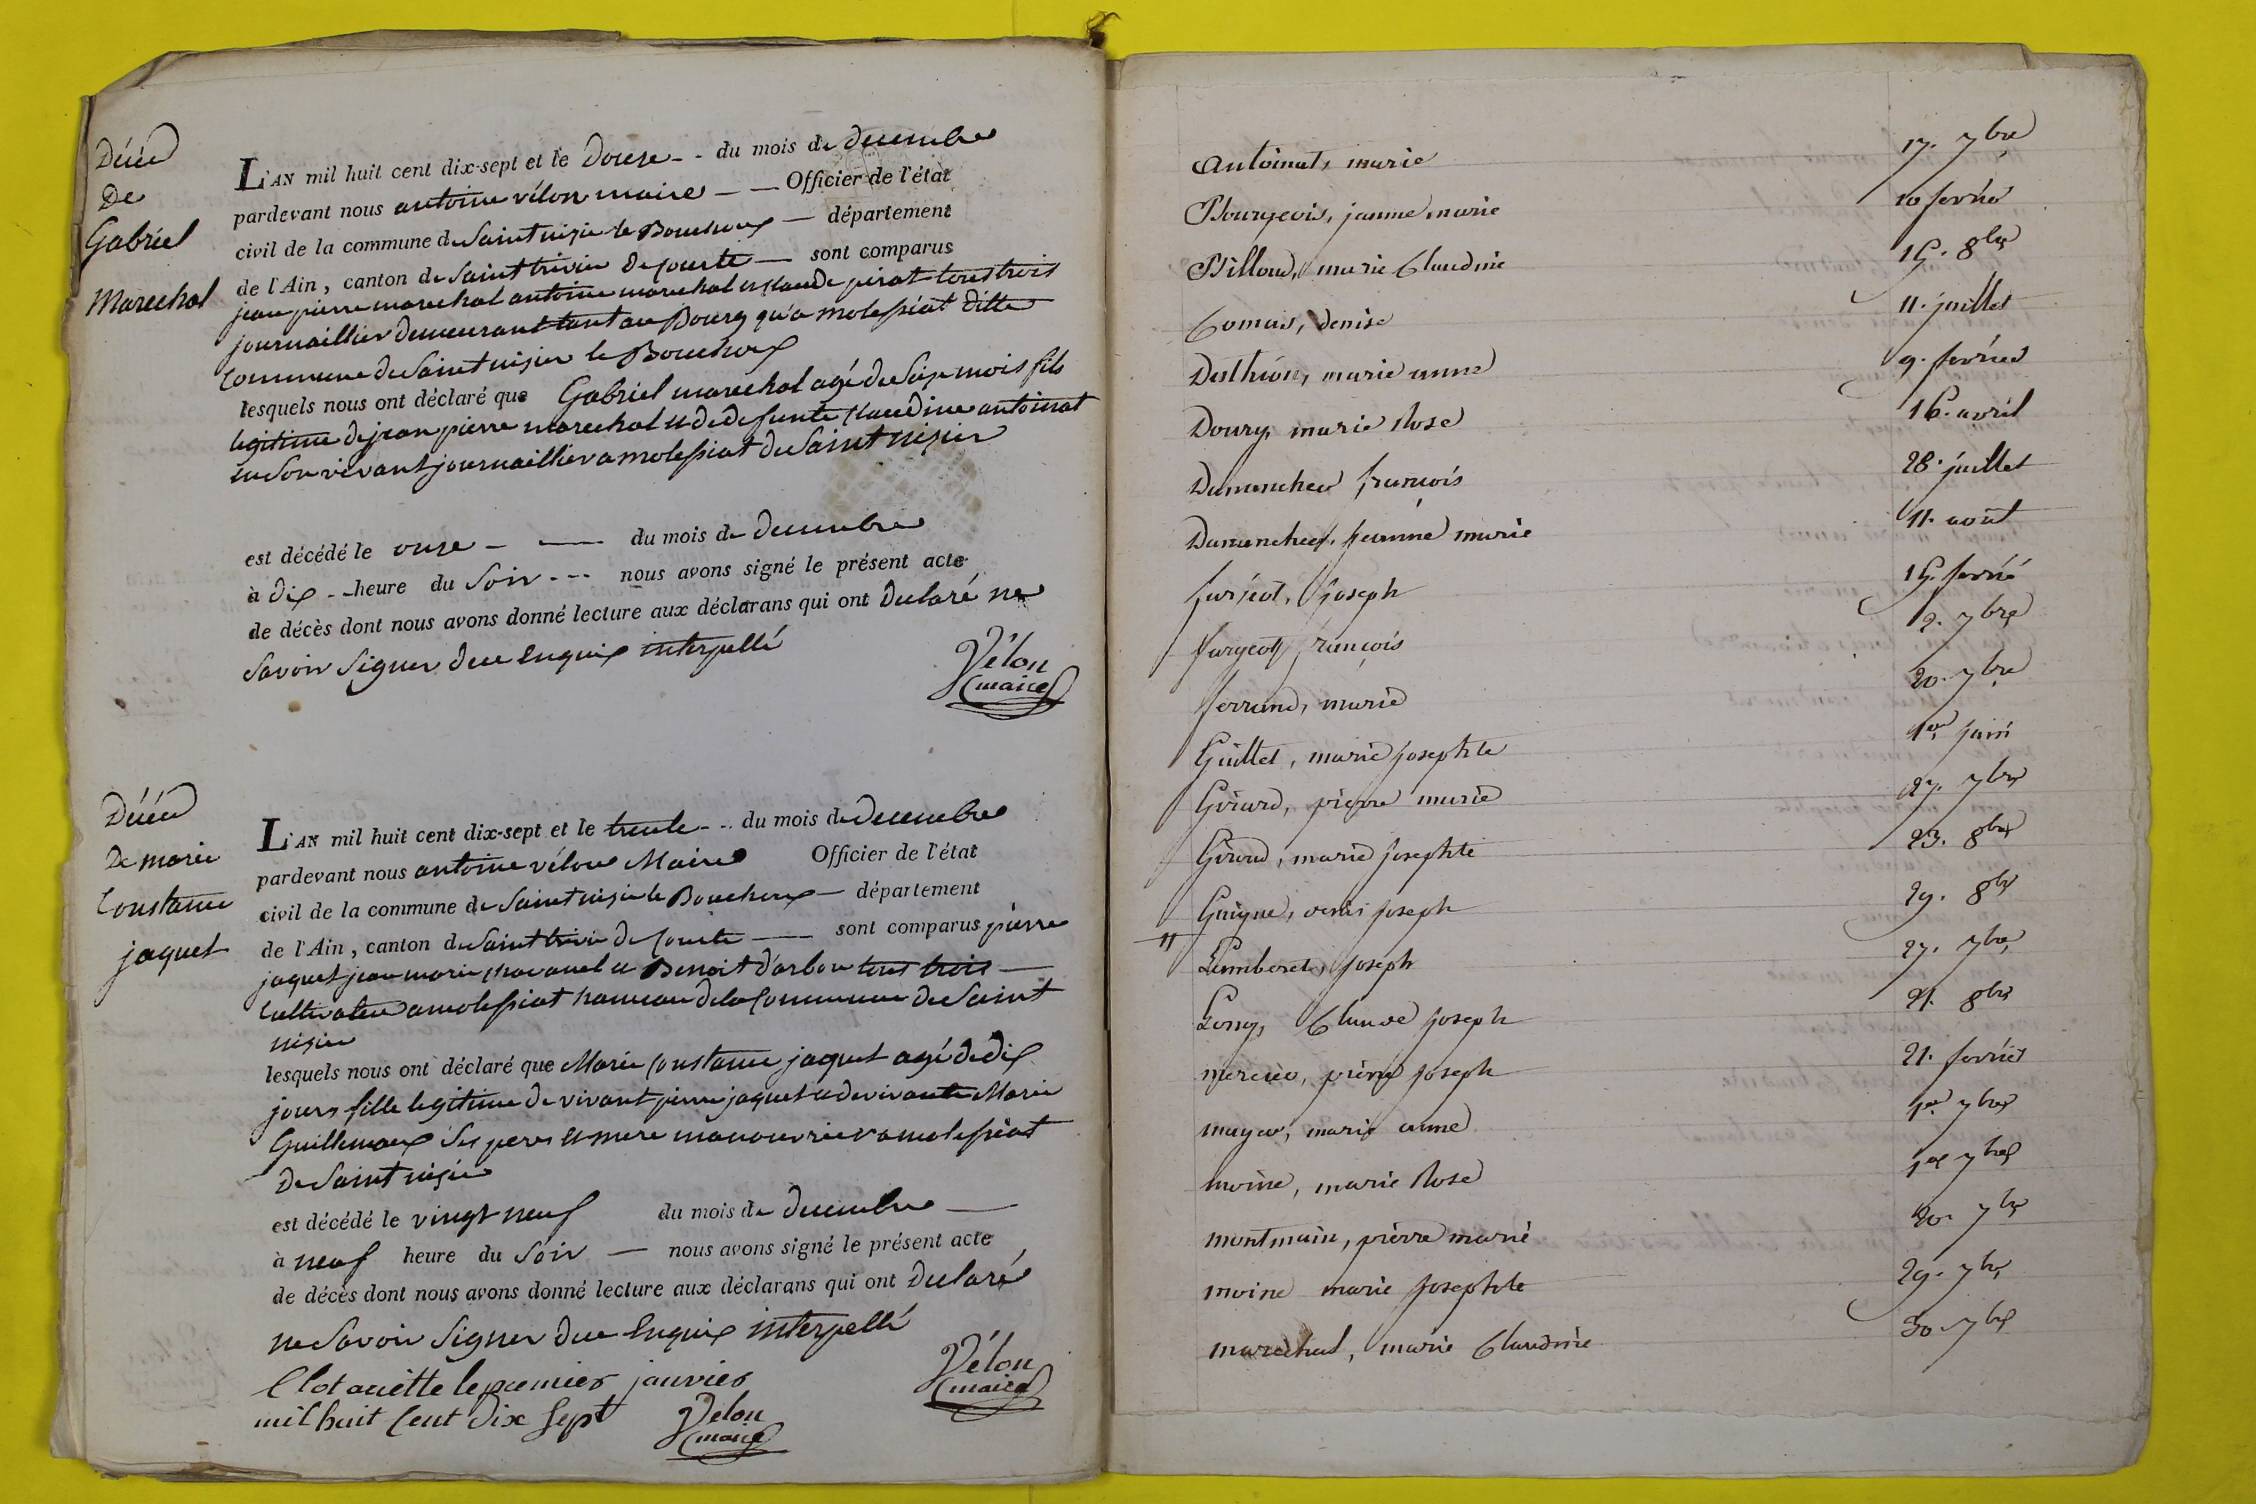 Décéd
De
Gabriel
Marechal
L'AN mil huit cent dix-sept et le douse - - du mois de decembre
pardevant nous antoine vélon maire - — Officier de l'état
civil de la commune de Saint nisier le Bouchoux — département
de l'Ain, canton de Saint trivier de courte — sont comparus
jean pierre marechal antoine marechal et claude pirat tous trois
journaillier demeurant tant au Bourg qu'a molessiat ditte
Commune de Saint nisier le Bouchoux
lesquels nous ont déclaré que Gabriel marechal agé de Six mois fils
legitime de jean pierre marechal et de defunte claudine antoinat
en Son vivant journaillier a molessiat de Saint nisier
est décédé le onse - — du mois de decembre
à dix - -heure du Soir - - - nous avons signé le présent acte
de décès dont nous avons donné lecture aux déclarans qui ont declaré ne
Savoir Signer de ce enquix interpellé
Vélon
maire
Décéd
De marie
Constance
jaquet
L'AN mil huit cent dix-sept et le trente - - du mois de decembre
pardevant nous antoine vélon Maire Officier de l'état
civil de la commune de Saint nisier le Bouchoux — département
de l'Ain, canton de Saint trivier de Courte — sont comparus pierre
jaquet jean marie chavanel et Benoit d'arbon tous trois —
Cultivateur a molessiat hameau de la Commune de Saint
nisier
lesquels nous ont déclaré que Marie Constance jaquet agé de dix
jours fille legitime de vivant pierre jaquet et de vivante Marie
Guillemaux Ses peres et mere manouvrier a molessiat
de Saint nisier
est décédé le vingt neuf du mois de decembre —
à neuf heure du Soir — nous avons signé le présent acte
de décès dont nous avons donné lecture aux déclarans qui ont declaré
ne Savoir Signer de ce enquix interpellé
Clot arrette le premier janvier
mil huit Cent dix Sept
Vélon
maire
Vélon
maire
Antoinat, marie 17. 7bre
Bourgeois, jeanne marie 10 fevrier
Billoud, marie Claudine 15. 8bre
Comas, denise 11. juillet
Dethion, marie anne 9. fevrier
Doury, marie Rose 16. avril
Damanches françois 28. juillet
Damanches, jeanne marie 11. août
furjeot, joseph 15. fevrié
furgeot, françois 2. 7bre
ferrand, marie 20. 7bre
Guillet, marie josephte 1er juin
Girard, pierre marie 27. 7bre
Giroud, marie josephte 23. 8bre
Guigue, denis joseph 29. 8bre
Lamberet, joseph 27. 7bre
Long, Claude joseph 21. 8bre
mercier, pierre joseph 21. fevrier
mayer, marie anne 1er 7bre
moine, marie Rose 1er 7bre
montmain, pierre marie 20. 7bre
moine marie josephte 29. 7bre
marechal, marie Claudine 30. 7bre